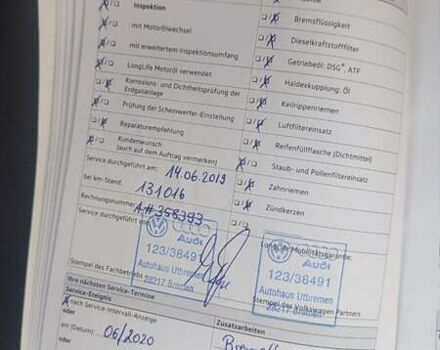 Inspektion
mit Motorölwechsel
mit erweitertem Inspektionsumfang
LongLife Motoröl verwendet
Korrosions- und Dichtheitsprüfung der
Erdgasanlage
Prüfung der Scheinwerfer-Einstellung
Reparaturempfehlung
Kundenwunsch
(auch auf dem Auftrag vermerken)
Service durchgeführt am: 14.06.2019
bei km-Stand: 131016
Rechnungsnummer: A.# 358393
Service durchgeführt
Audi
123/38491
Autohaus Utbremen
28217 Bremen
Stempel des Fachbetriebs
Bremsflüssigkeit
Dieselkraftstofffilter
Getriebeöl: DSG®, ATF
Haldexkupplung: Öl
Keilrippenriemen
Luftfiltereinsatz
Reifenfüllflasche (Dichtmittel)
Staub- und Pollenfiltereinsatz
Zahnriemen
Zündkerzen
LongLife Mobilitätsgarantie:
Audi
123/38491
Autohaus Utbremen
28217 Bremen
Stempel des Volkswagen Partners
Ihre nächsten Service-Termine
Service-Ereignis
nach Service-Intervall-Anzeige
oder
am (Datum): 06/2020
oder
Zusatzarbeiten